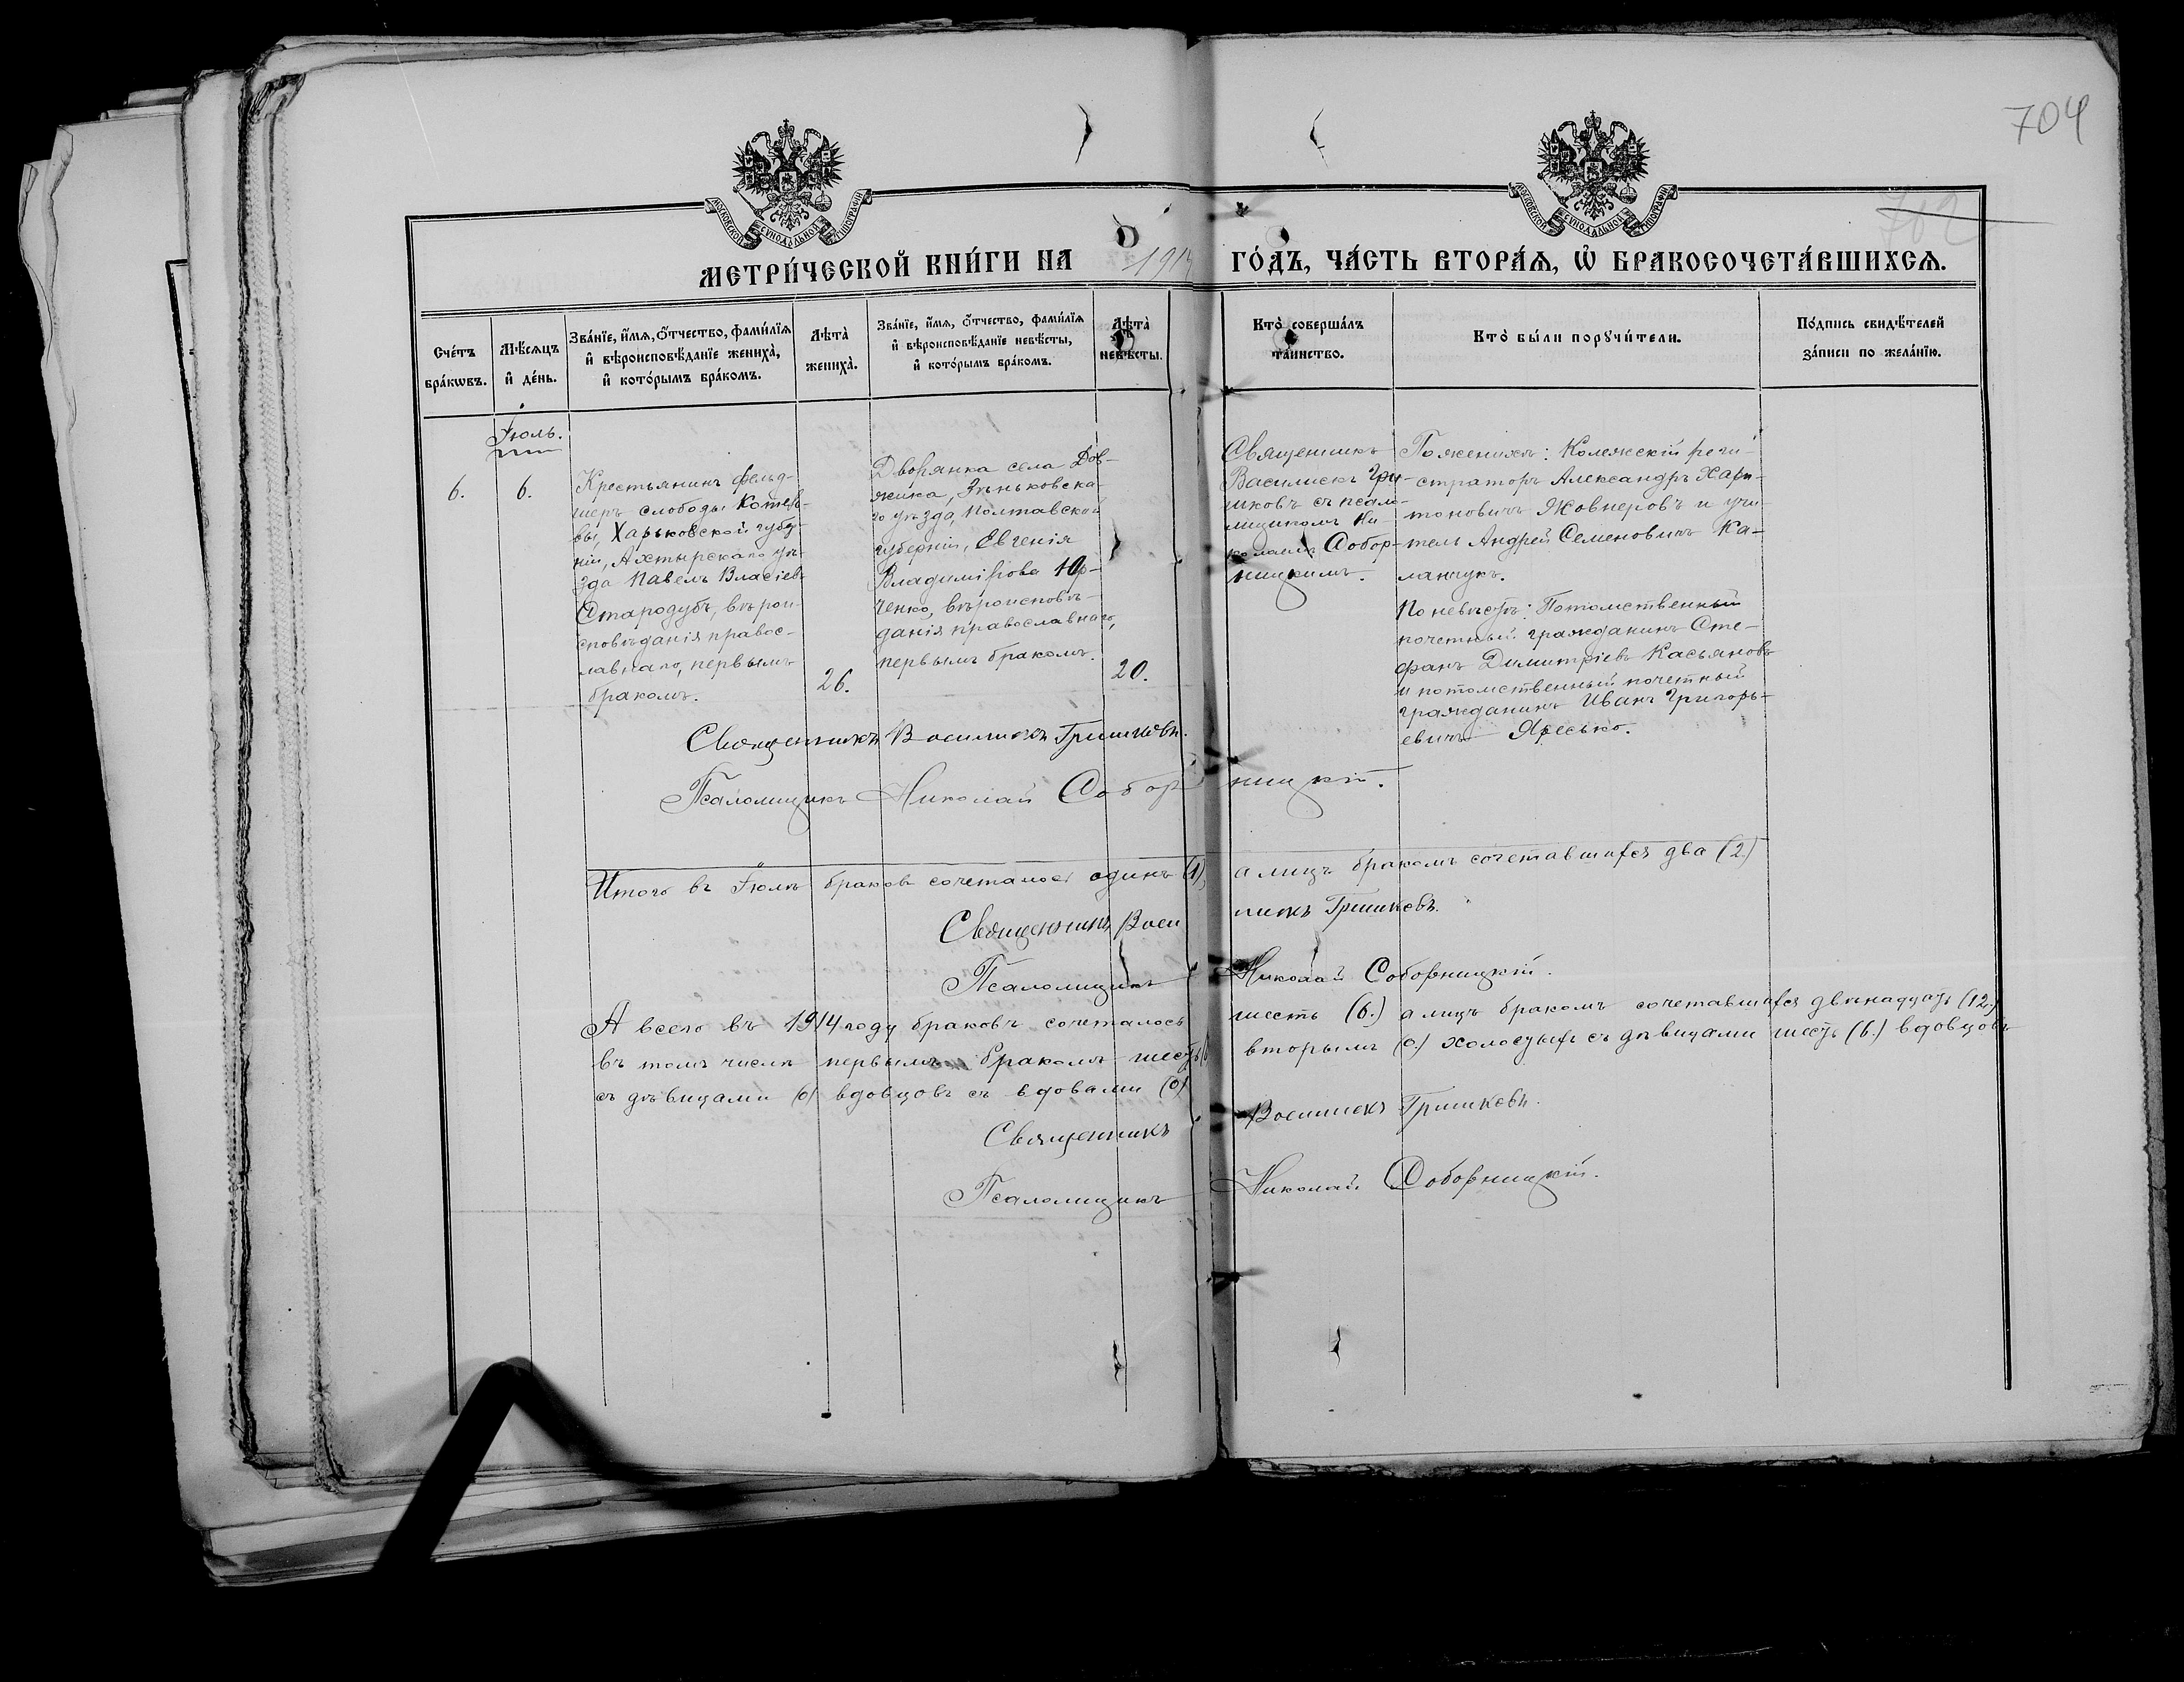 704
702
МОСКОВСКОЙ СѴНОДАЛЬНОЙ ТИПОГРАФІИ
МОСКОВСКОЙ СѴНОДАЛЬНОЙ ТИПОГРАФІИ
МЕТРИ́ЧЕСКОЙ КНИ́ГИ НА 1914 ГО́ДЪ, ЧА́СТЬ ВТОРА́Ѧ, Ѡ҆ БРАКОСОЧЕТА́ВШИХСѦ.
Сче́тъ
бра́кѡвъ.
Мѣ́сѧцъ
и҆ де́нь.
Зва́нїе, и҆́мѧ, ѻ҆́тчество, фамі́лїѧ
и҆ вѣроисповѣ́данїе жениха̀,
и҆ кото́рымъ бра́комъ.
Лѣта̀
жениха̀.
Зва́нїе, и҆́мѧ, ѻ҆́тчество, фамі́лїѧ
и҆ вѣроисповѣ́данїе невѣ́сты,
и҆ кото́рымъ бра́комъ.
Лѣта̀
невѣ́сты.
Кто̀ соверша́лъ
та́инство.
Кто̀ бы́ли порꙋчи́тели.
По́дпись свидѣ́телей
за́писи по жела́нїю.
Іюль.
6.
6.
Крестьянинъ фельд-
шеръ слободы Котель-
вы, Харьковской губер-
ніи, Ахтырскаго уѣ-
зда Павелъ Власіевъ
Стародубъ, вѣрои-
сповѣданія правос-
лавнаго, первымъ
бракомъ.
26.
Дворянка села Дов-
жика, Зѣньковска-
го уѣзда, Полтавской
губерніи, Евгенія
Владимірова Юр-
ченко, вѣроисповѣ-
данія православнаго,
первымъ бракомъ.
20.
Священникъ
Василискъ Гри-
шковъ съ псало-
мщикомъ Ни-
колаемъ Собор-
ницкимъ.
По женихѣ: Колежскій реги-
страторъ Александръ Хари-
тоновичъ Жовнеровъ и учи-
тель Андрей Семеновичъ Ка-
ланчукъ.
По невѣстѣ: Потомственный
почетный гражданинъ Сте-
фанъ Димитріевъ Касьяновъ
и потомственный почетный
гражданинъ Иванъ Григорь-
евичъ Яресько.
Священникъ Василискъ Гришковъ.
Псаломщикъ Николай Соборницкій.
Итого въ Іюлѣ браковъ сочеталось одинъ (1), а лицъ бракомъ сочетавшихся два (2)
Священникъ Василискъ Гришковъ.
Псаломщикъ Николай Соборницкій.
А всего въ 1914 году браковъ сочеталось шесть (6.) а лицъ бракомъ сочетавшихся двѣнадцать (12.)
въ томъ числѣ первымъ бракомъ шесть (6) вторымъ (0.) холостыхъ съ дѣвицами шесть (6.) вдовцовъ
съ дѣвицами (0) вдовцовъ съ вдовами (0)
Священникъ Василискъ Гришковъ.
Псаломщикъ Николай Соборницкій.